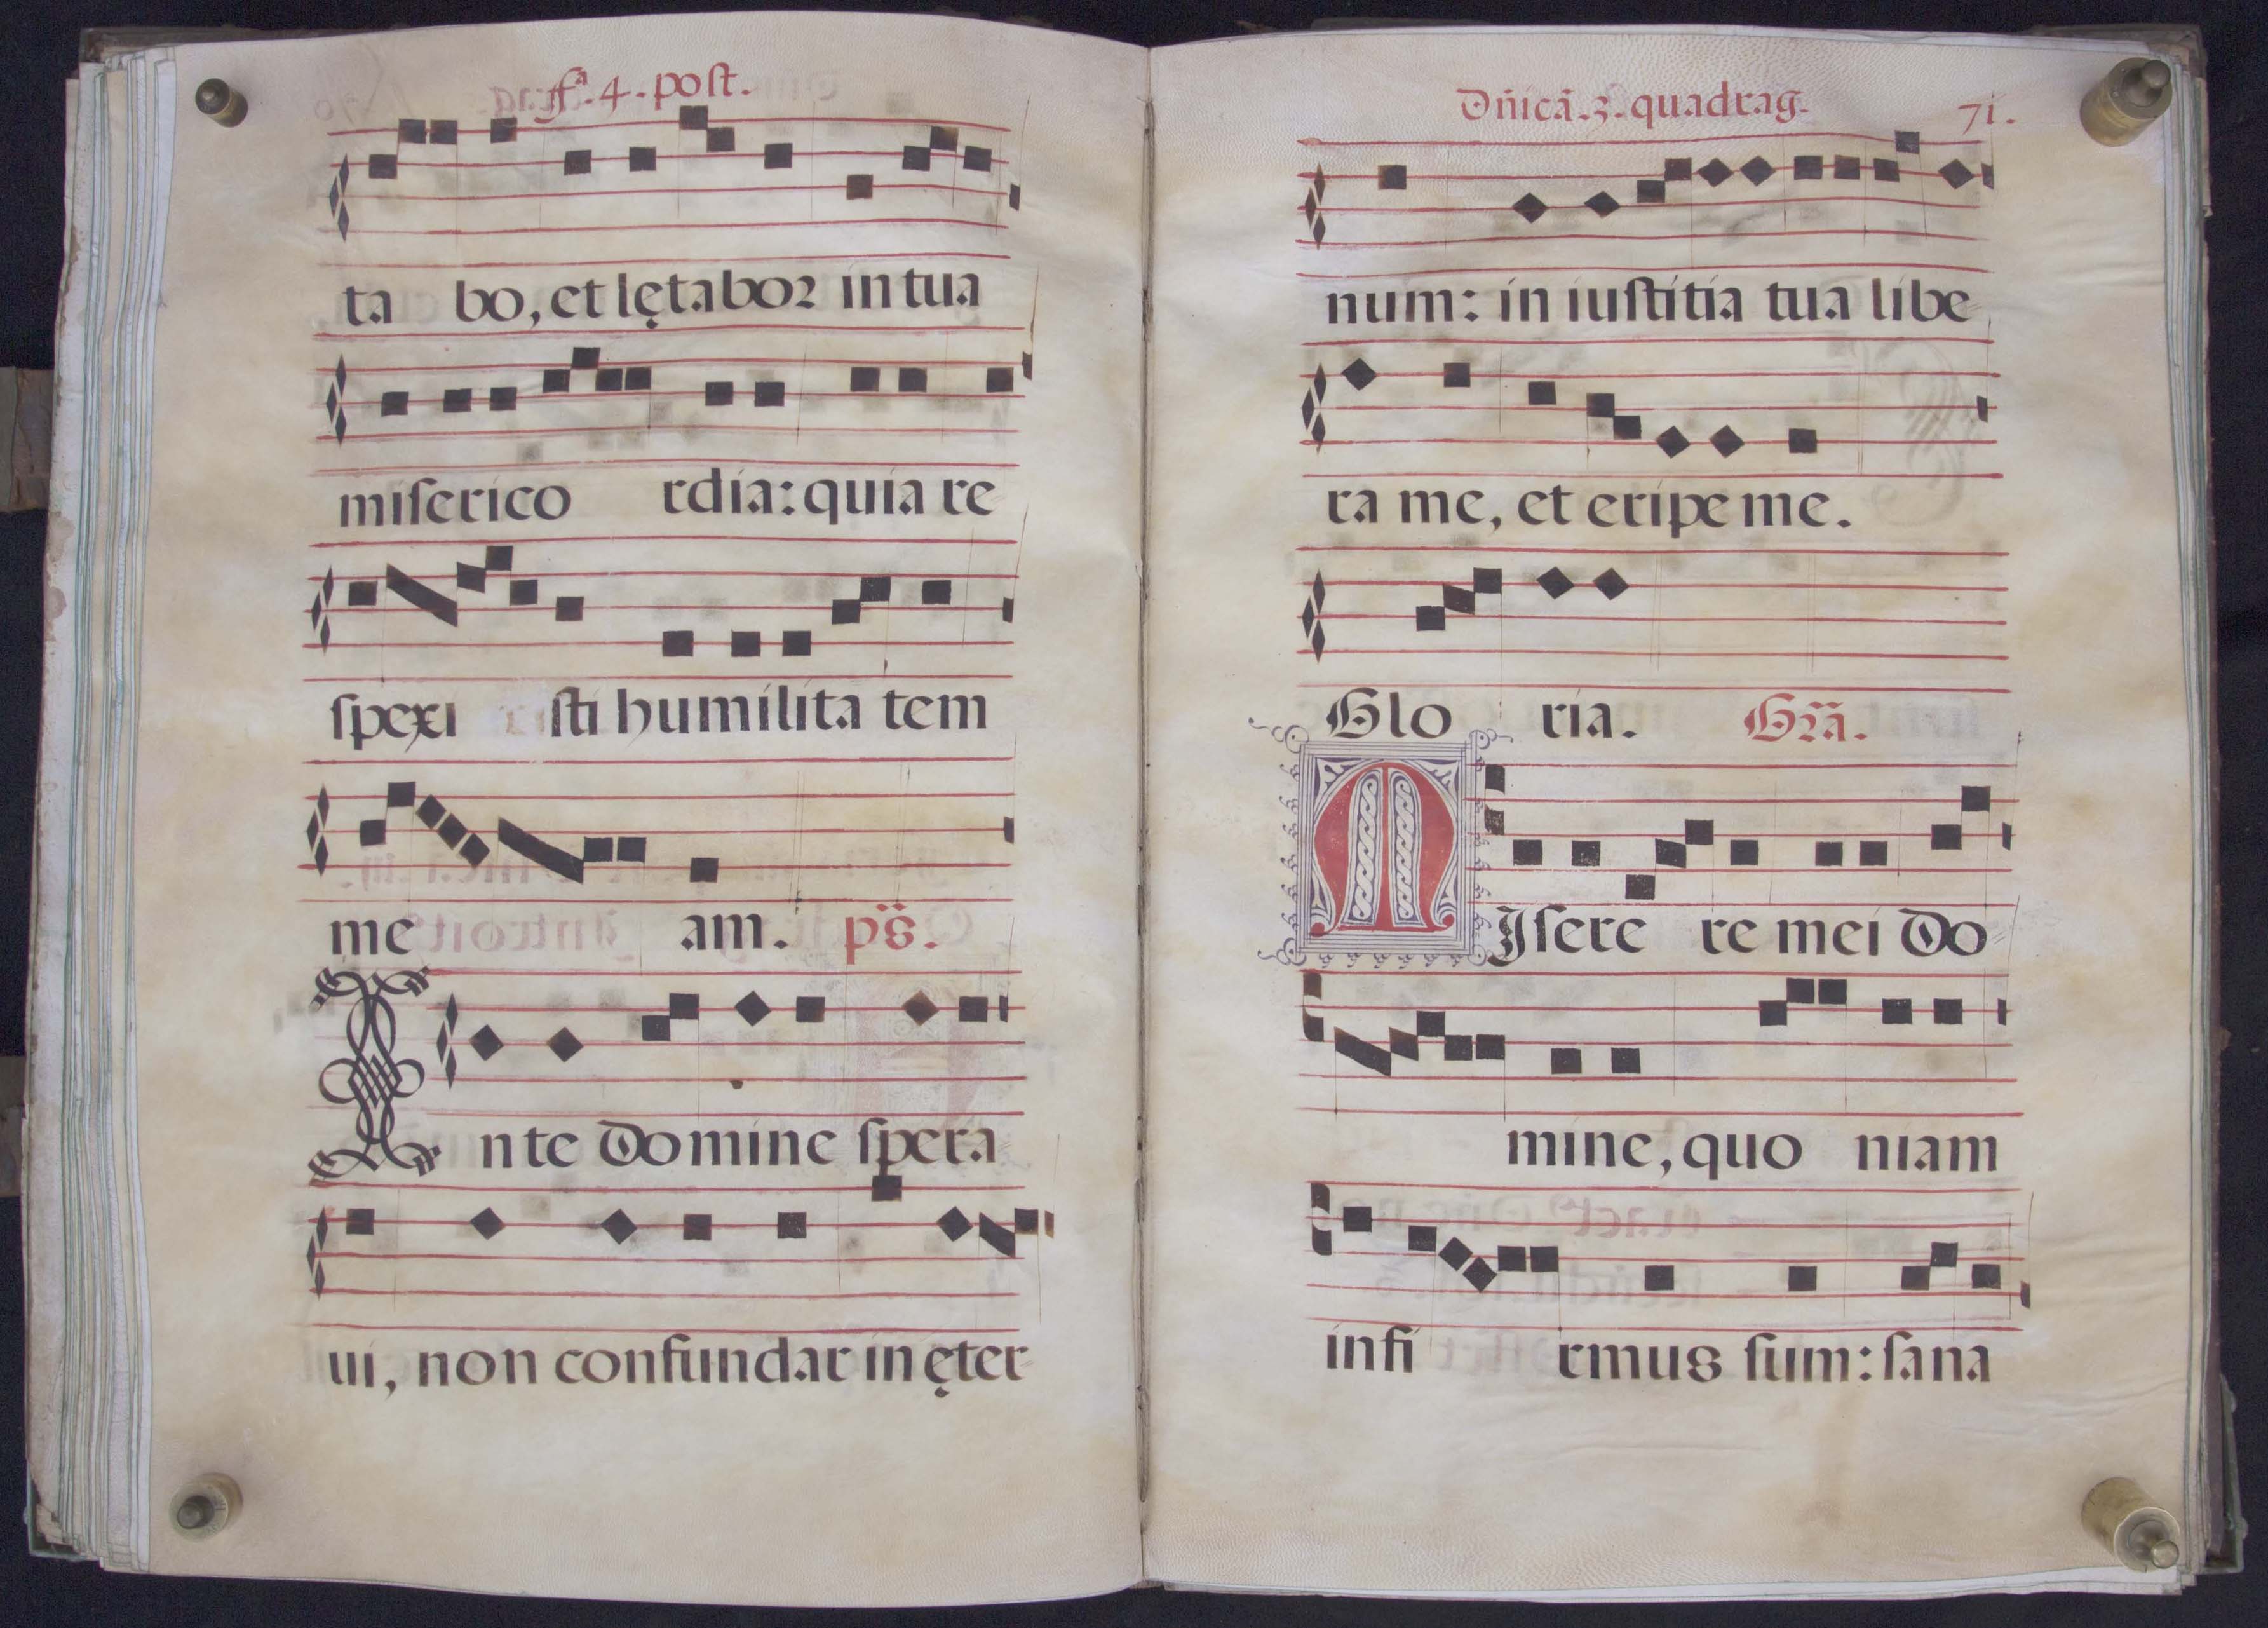 ffa. 4. post.
ta bo, et lętabor in tua
miserico rdia: quia re
spexi sti humilita tem
me am. ps̃.
In te Domine spera
ui, non confundar in ęter
Dñicã. 3. quadrag. 71.
num: in iustitia tua libe
ra me, et eripe me.
Glo ria. Grã.
MIsere re mei Do
mine, quo niam
infi rmus sum: sana